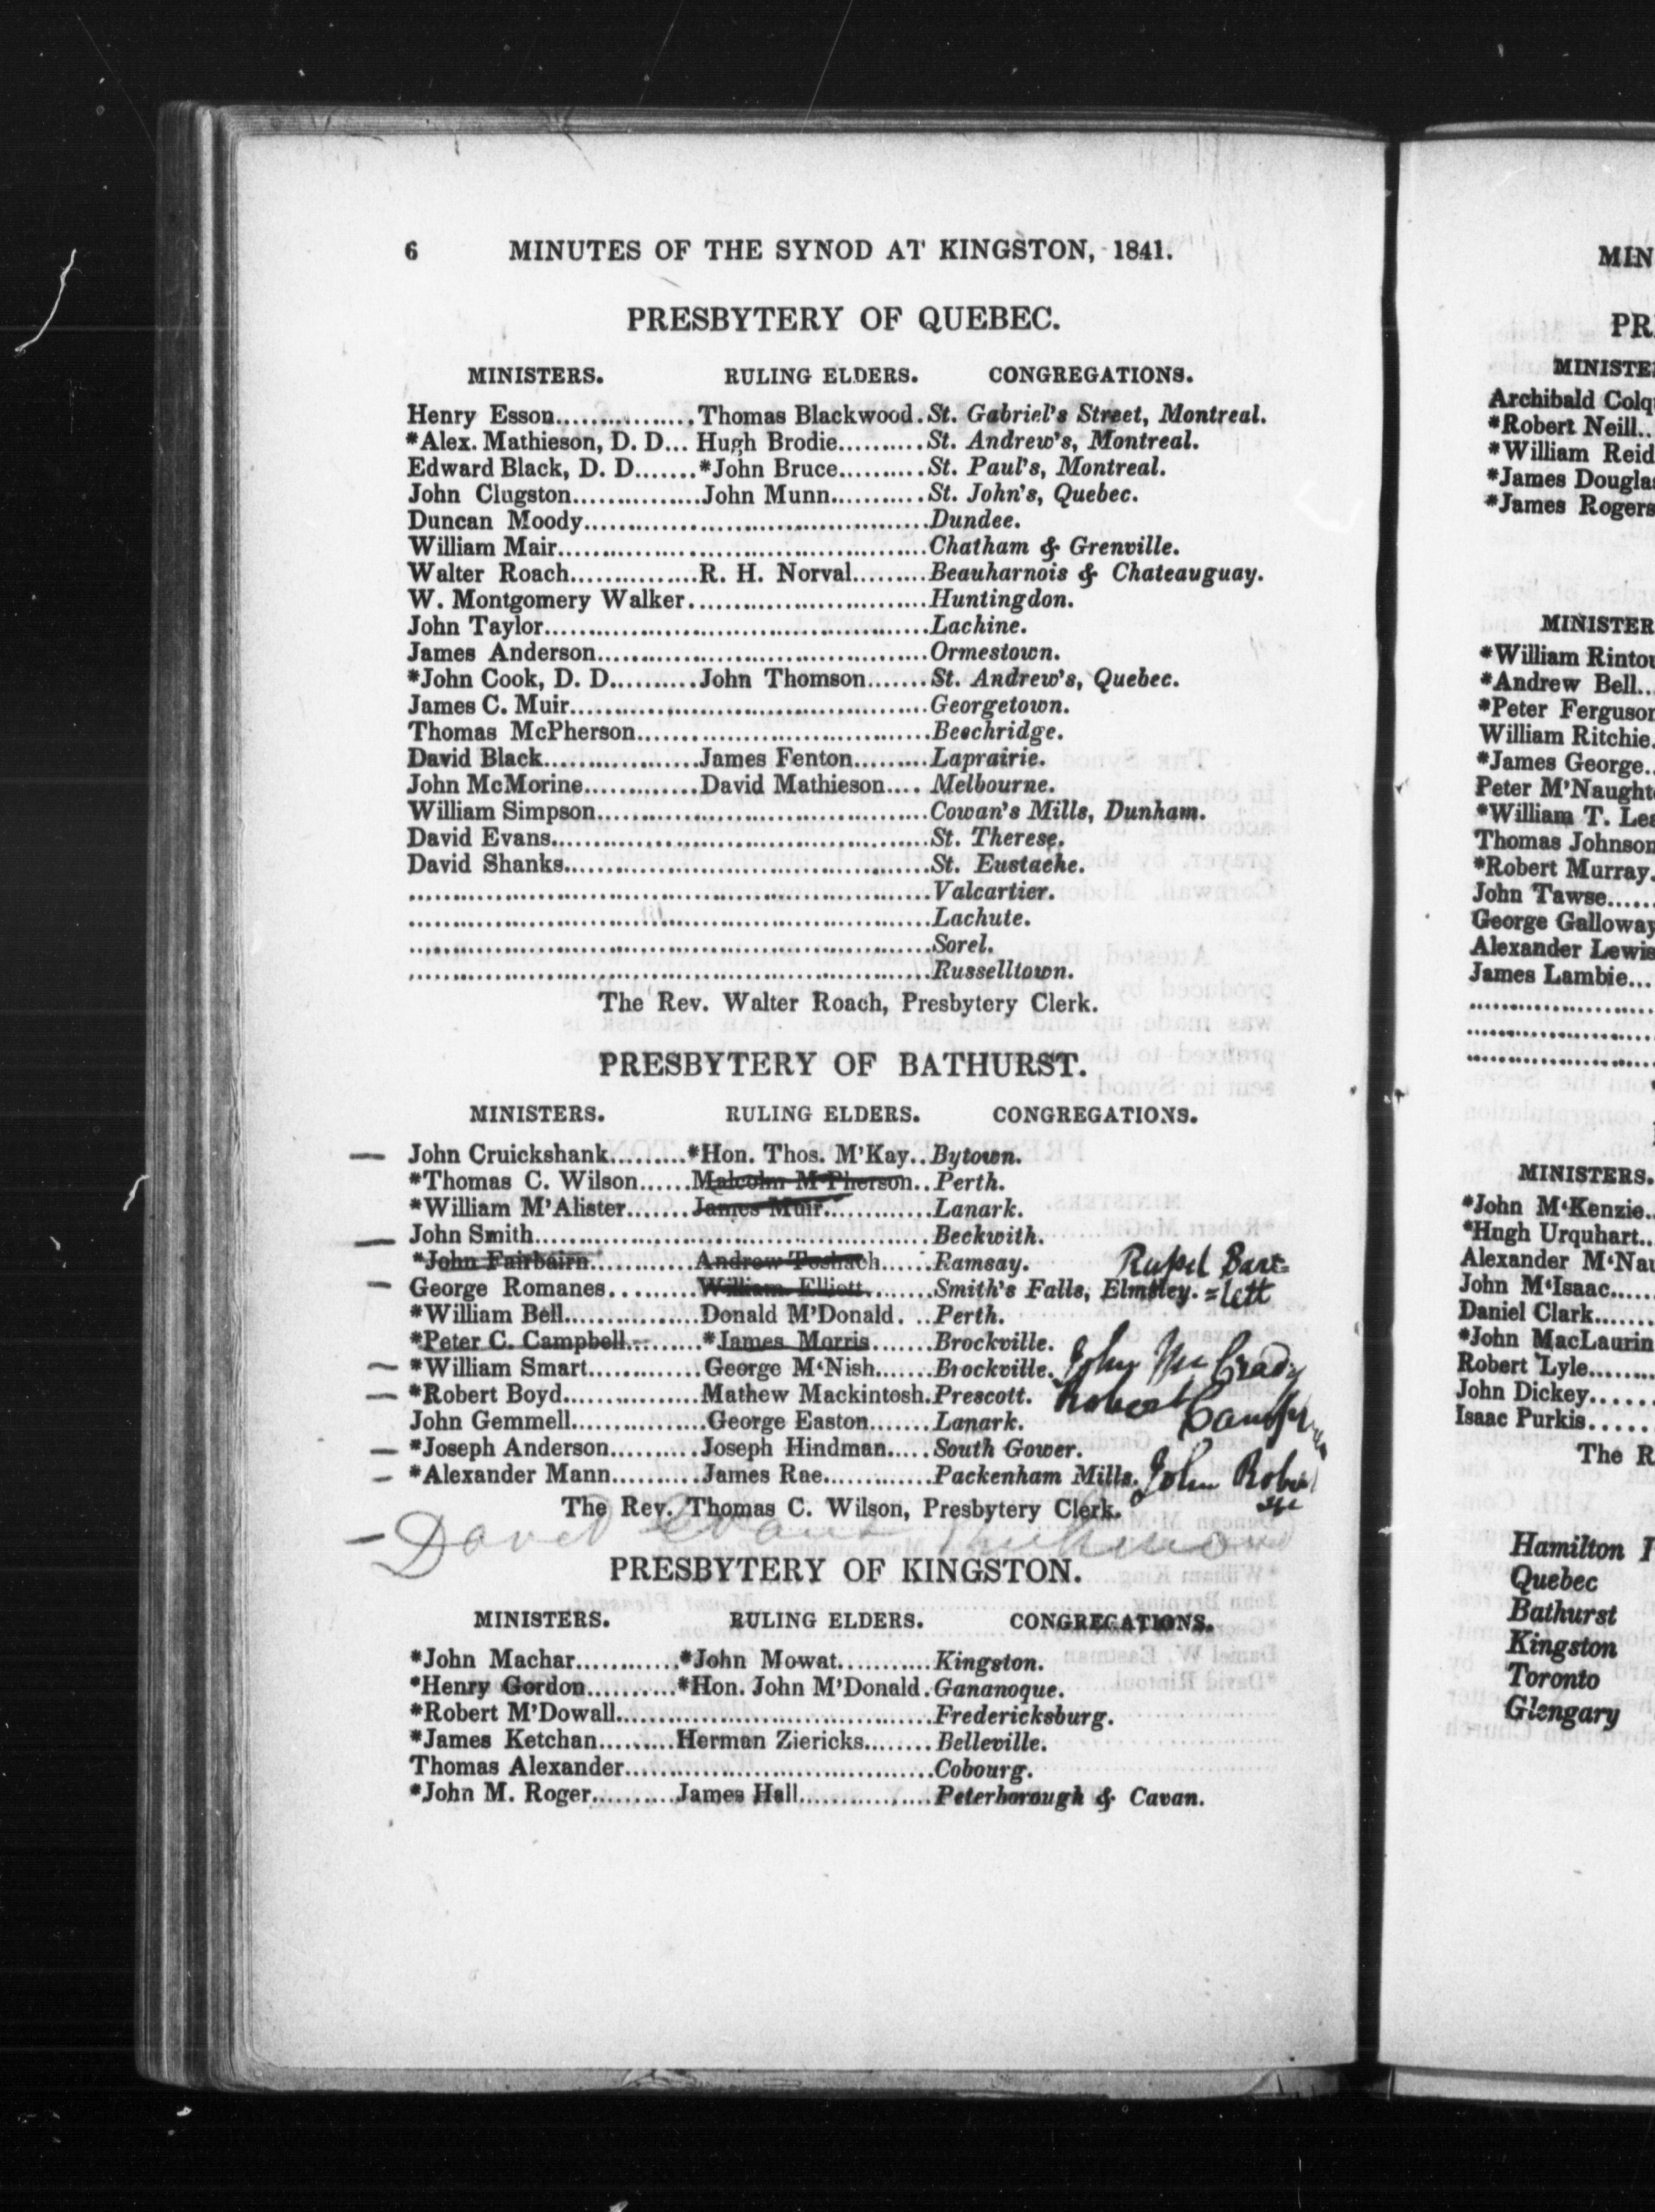 6 MINUTES OF THE SYNOD AT KINGSTON, 1841.
PRESBYTERY OF QUEBEC.
MINISTERS. RULING ELDERS. CONGREGATIONS.
Henry Esson................Thomas Blackwood.St. Gabriel's Street, Montreal.
*Alex. Mathieson, D. D... Hugh Brodie..........St. Andrew's, Montreal.
Edward Black, D. D.......*John Bruce..........St. Paul's, Montreal.
John Clugston...............John Munn...........St. John's, Quebec.
Duncan Moody.........................................Dundee.
William Mair............................................Chatham & Grenville.
Walter Roach...............R. H. Norval.........Beauharnois & Chateauguay.
W. Montgomery Walker............................Huntingdon.
John Taylor..............................................Lachine.
James Anderson.......................................Ormestown.
*John Cook, D. D..........John Thomson.......St. Andrew's, Quebec.
James C. Muir...........................................Georgetown.
Thomas McPherson...................................Beechridge.
David Black..................James Fenton.........Laprairie.
John McMorine.............David Mathieson.... Melbourne.
William Simpson.......................................Cowan's Mills, Dunham.
David Evans.............................................St. Therese.
David Shanks...........................................St. Eustache.
..............................................................Valcartier.
..............................................................Lachute.
..............................................................Sorel.
..............................................................Russelltown.
The Rev. Walter Roach, Presbytery Clerk.
PRESBYTERY OF BATHURST.
MINISTERS. RULING ELDERS. CONGREGATIONS.
— John Cruickshank.........*Hon. Thos. M'Kay..Bytown.
*Thomas C. Wilson......Malcolm M'Pherson..Perth.
*William M'Alister.......James Muir.............Lanark.
— John Smith...............................................Beckwith.
*John Fairbairn............Andrew Toshach......Ramsay. Russel Bart=
— George Romanes..........William Elliott........Smith's Falls, Elmsley. =lett
*William Bell...............Donald M'Donald. ..Perth.
*Peter C. Campbell........*James Morris.......Brockville.
— *William Smart.............George M'Nish.......Brockville. John Mc Cready
— *Robert Boyd...............Mathew Mackintosh.Prescott. Robert
John Gemmell................George Easton.......Lanark.
— *Joseph Anderson..........Joseph Hindman.....South Gower.
— *Alexander Mann...........James Rae.............Packenham Mills. John
The Rev. Thomas C. Wilson, Presbytery Clerk.
— David Evans
PRESBYTERY OF KINGSTON.
MINISTERS. RULING ELDERS. CONGREGATIONS.
*John Machar............*John Mowat...........Kingston.
*Henry Gordon..........*Hon. John M'Donald.Gananoque.
*Robert M'Dowall.....................................Fredericksburg.
*James Ketchan.........Herman Ziericks........Belleville.
Thomas Alexander....................................Cobourg.
*John M. Roger..........James Hall................Peterborough & Cavan.
MIN
PR
MINISTE
Archibald Colq
*Robert Neill..
*William Reid
*James Douglas
*James Rogers
MINISTER
*William Rintou
*Andrew Bell...
*Peter Ferguson
William Ritchie.
*James George..
Peter M'Naught
*William T. Lea
Thomas Johnson
*Robert Murray.
John Tawse......
George Galloway
Alexander Lewis
James Lambie...
MINISTERS.
*John M'Kenzie..
*Hugh Urquhart..
Alexander M'Nau
John M'Isaac.....
Daniel Clark.......
*John MacLaurin
Robert Lyle........
John Dickey.......
Isaac Purkis......
The R
Hamilton P
Quebec
Bathurst
Kingston
Toronto
Glengary